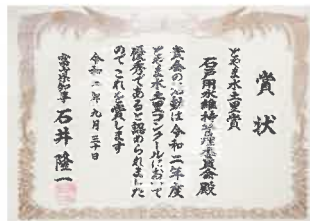 賞状
とやま水土里賞
石戸用水維持管理委員会殿
貴会の活動は令和二年度
とやま水土里コンクールにおいて
優秀であると認められました
のでこれを賞します
令和二年九月三十日
富山県知事 石井隆一